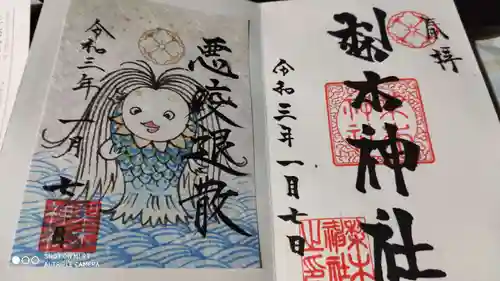 奉拝
梨木神社
令和三年一月七日
悪疫退散
令和三年
一月
七日
SHOT ON MI 9T
AI TRIPLE CAMERA